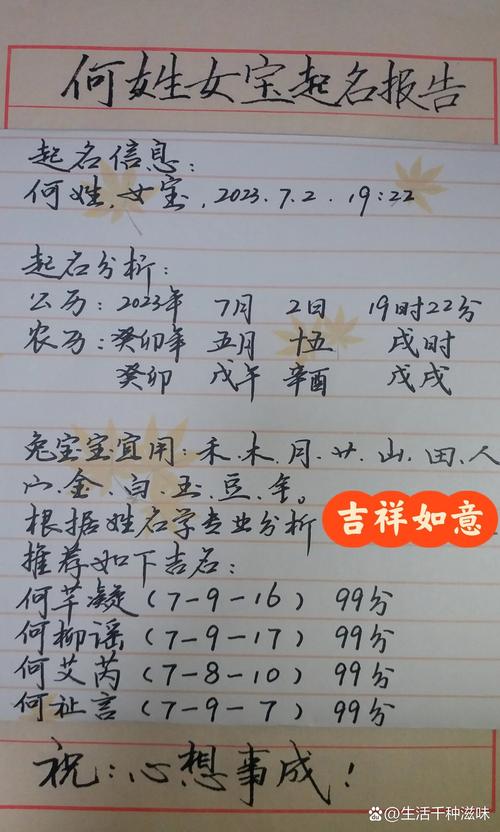 何姓女宝起名报告
起名信息:
何姓,女宝,2023.7.2.19:22
起名分析:
公历:2023年 7月 2日 19时22分
农历:癸卯年 五月 十五 戌时
癸卯 戊午 辛酉 戊戌
兔宝宝宜用:禾.木.月.艹.山.田.人
宀.金.白.玉.豆.
根据姓名学专业分析
吉祥如意
推荐如下吉名:
何芊凝(7-9-16) 99分
何柳谣(7-9-17) 99分
何艾芮(7-8-10) 99分
何祉言(7-9-7) 99分
祝:心想事成!
@生活千种滋味